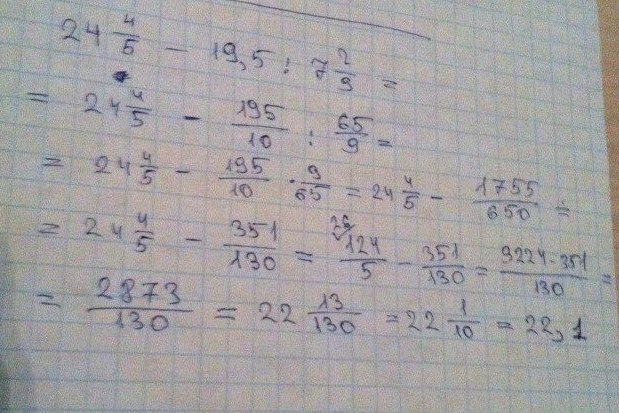 24 4/5 - 19,5 : 7 2/9 =
= 24 4/5 - 195/10 : 65/9 =
= 24 4/5 - 195/10 · 9/65 = 24 4/5 - 1755/650 =
= 24 4/5 - 351/130 = 26 124/5 - 351/130 = 3224-351/130 =
= 2873/130 = 22 13/130 = 22 1/10 = 22,1